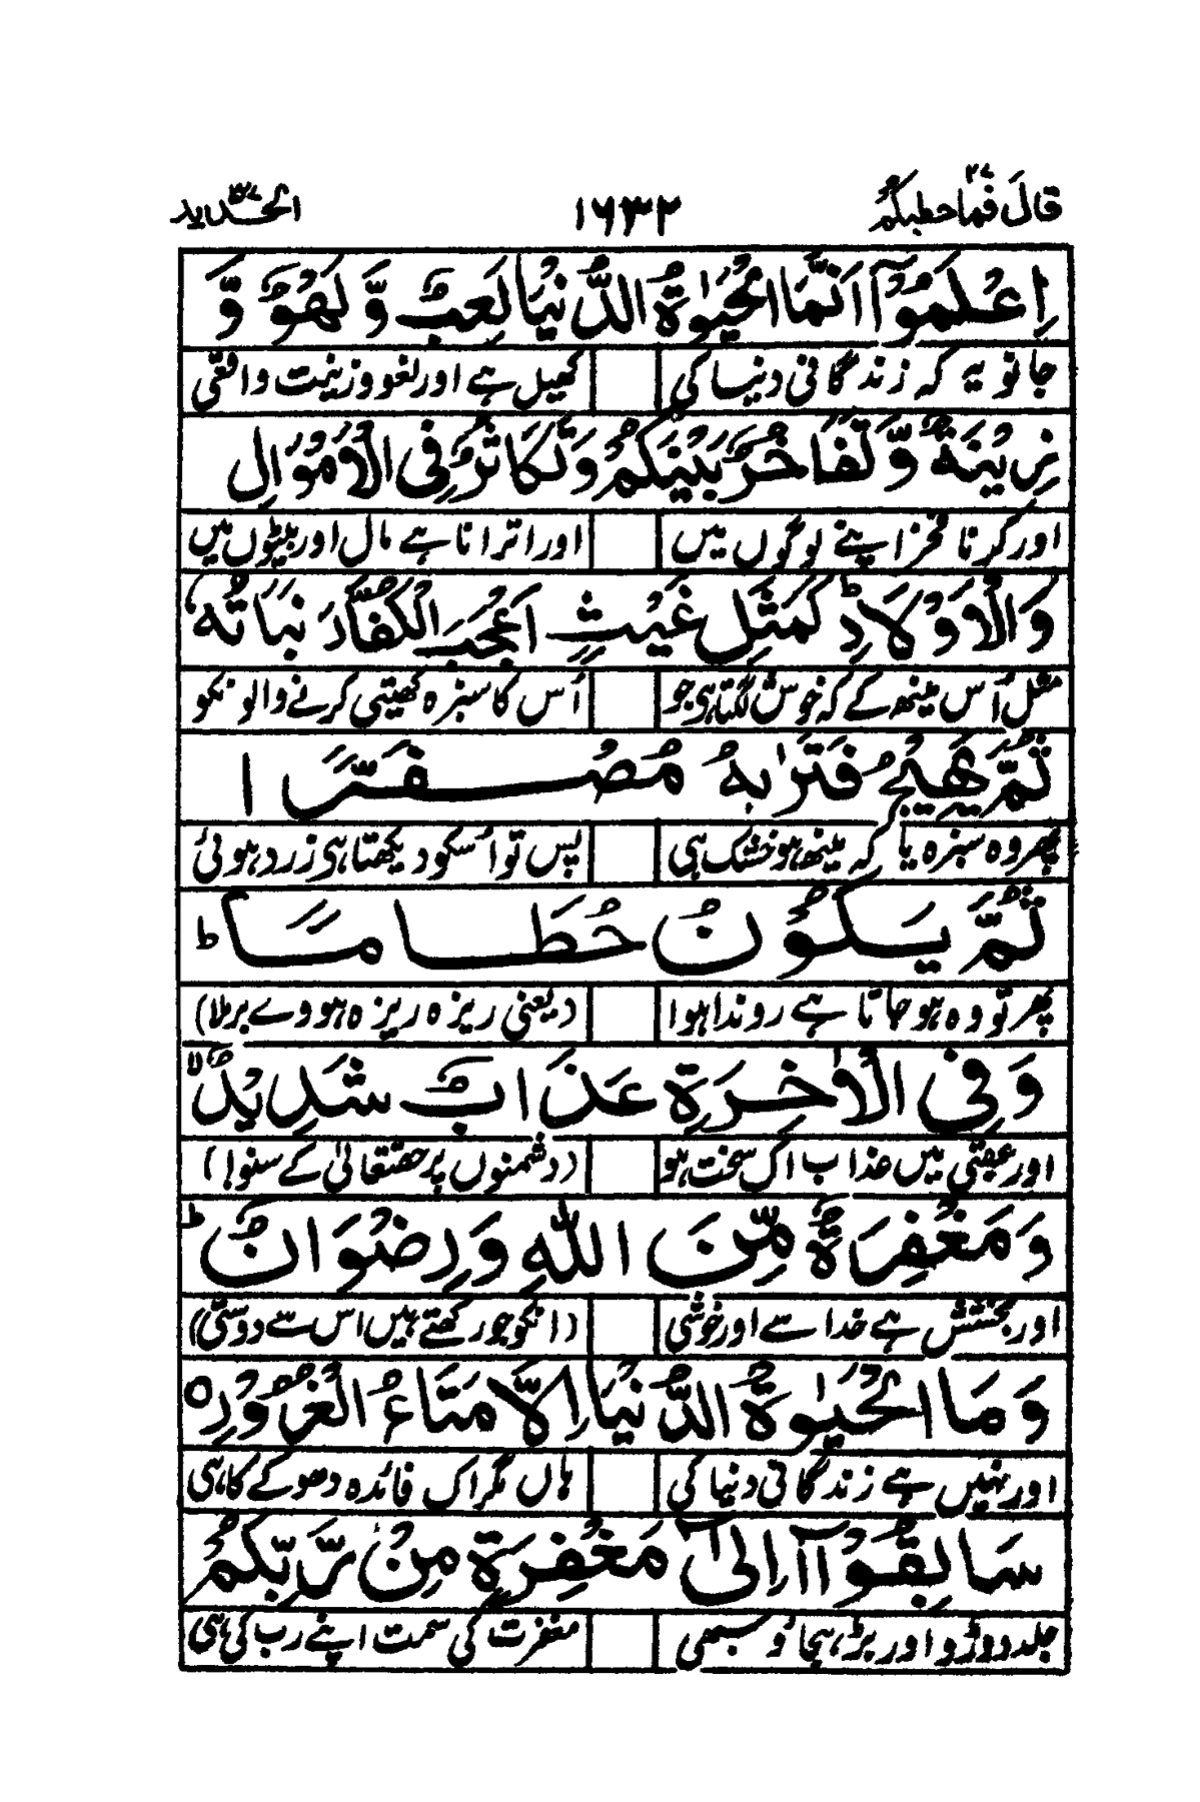 قَالَ فَمَا خَطْبُكُمْ ٢٧ ١٦٣٢ الحدید ٥٧
اِعْلَمُوْۤا اَنَّمَا الْحَيٰوةُ الدُّنْيَا لَعِبٌ وَّ لَهْوٌ وَّ
جانو یہ کہ زندگانی دنیا کی کھیل ہے اور لغو و زینت واقعی
زِيْنَةٌ وَّ تَفَاخُرٌۢ بَيْنَكُمْ وَ تَكَاثُرٌ فِى الْاَمْوَالِ
اور کرنا فخر اپنے لوگوں میں اور اترانا ہے مال اور بیٹوں میں
وَالْاَوْلَادِ ؕ كَمَثَلِ غَيْثٍ اَعْجَبَ الْكُفَّارَ نَبَاتُهٗ
مثل اُس مینھ کے کہ خوش لگتا ہی جو اُس کا سبزہ کھیتی کرنے والونکو
ثُمَّ يَهِيْجُ فَتَرٰىهُ مُصْفَرًّا
پھر وہ سبزہ یا کہ مینھ ہو خشک ہی پس تو اُسکو دیکھتا ہی زرد ہوئی
ثُمَّ يَكُوْنُ حُطَامًا ؕ
پھر تو وہ ہو جاتا ہے روندا ہوا (یعنی ریزہ ریزہ ہووے برملا)
وَفِى الْاٰخِرَةِ عَذَابٌ شَدِيْدٌ ۙ
اور عقبیٰ میں عذاب اک سخت ہو (دشمنوں پر حقتعالیٰ کے سنو!)
وَمَغْفِرَةٌ مِّنَ اللّٰهِ وَرِضْوَانٌ ؕ
اور بخشش ہے خدا سے اور خوشی (انکو جو رکھتے ہیں اس سے دوستی)
وَمَا الْحَيٰوةُ الدُّنْيَاۤ اِلَّا مَتَاعُ الْغُرُوْرِ ○
اور نہیں ہے زندگانی دنیا کی ہاں مگر اک فائدہ دھوکے کا ہی
سَابِقُوْۤا اِلٰى مَغْفِرَةٍ مِّنْ رَّبِّكُمْ
جلد دوڑو اور بڑھ جاؤ سبھی مغفرت کی سمت اپنے رب کی ہی